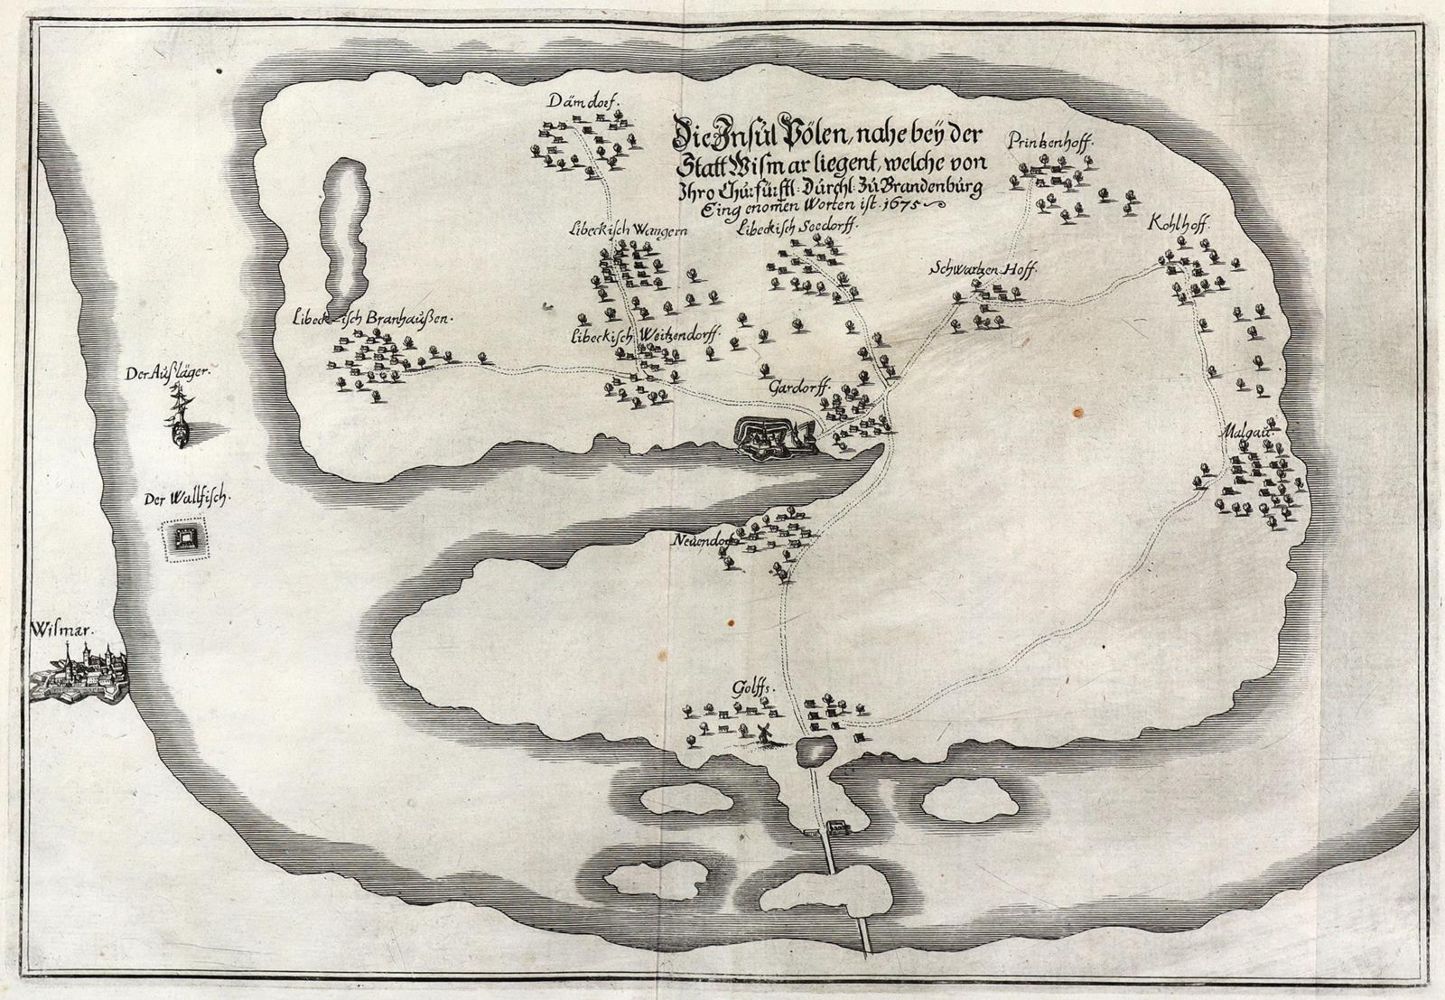 Dämdorf.
Die Insul Pölen, nahe beÿ der
Statt Wismar liegent, welche von
Ihro Churfürstl. Dürchl. Zü Brandenbürg
Eingenomen Worten ist. 1675
Prinkenhoff.
Kohlhoff.
Libeckisch Wangern
Libeckisch Seedorff.
Schwartzen Hoff.
Libeckisch Branhaußen.
Libeckisch Weitzendorff.
Der Außläger.
Gardorff.
Malgaü.
Der Wallfisch.
Neuendorf
Wismar.
Golffs.